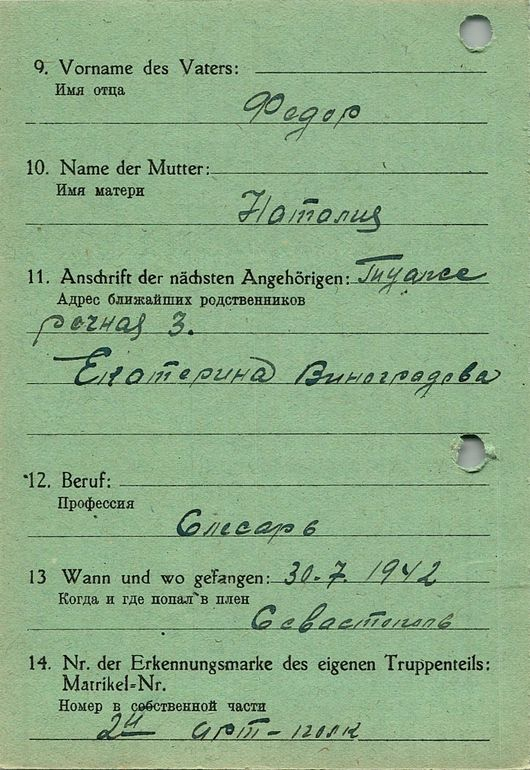 9. Vorname des Vaters:
Имя отца
Федор
10. Name der Mutter:
Имя матери
Наталия
11. Anschrift der nächsten Angehörigen: Туапсе
Адрес ближайших родственников
речная 3.
Екатерина Виноградова
12. Beruf:
Профессия
Слесарь
13 Wann und wo gefangen: 30.7.1942
Когда и где попал в плен
Севастополь
14. Nr. der Erkennungsmarke des eigenen Truppenteils:
Matrikel-Nr.
Номер в собственной части
2й арт-полк